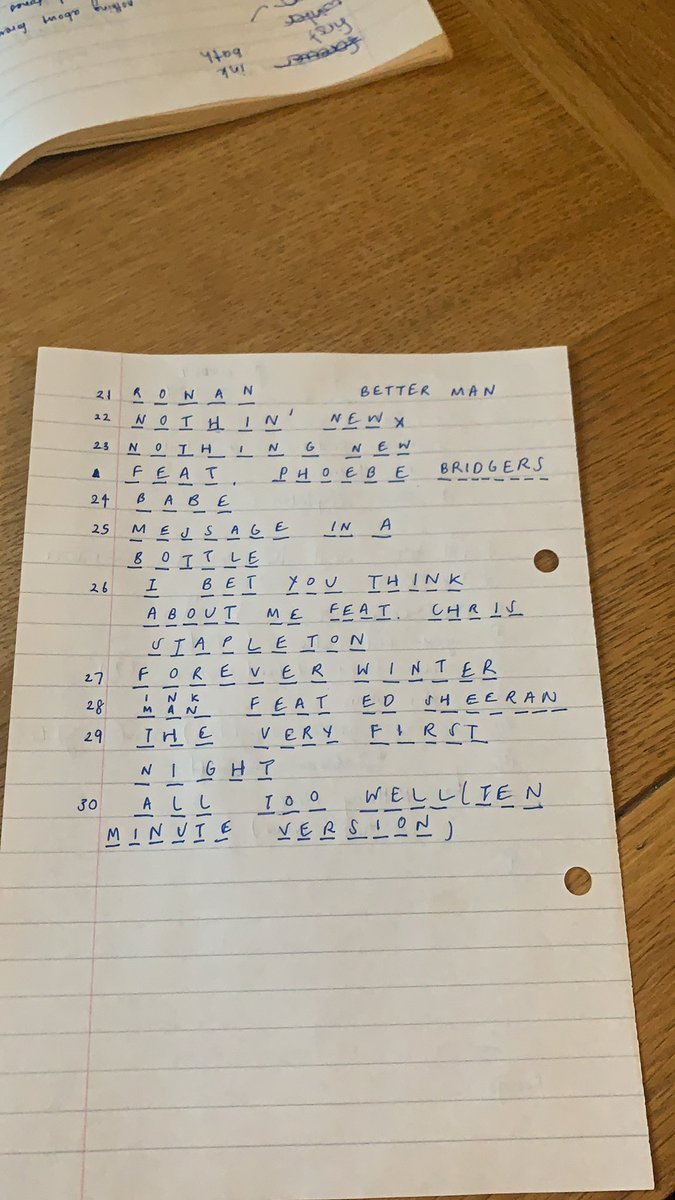 nothing about
ink
bath
21 RONAN BETTER MAN
22 NOTHIN' NEW x
23 NOTHING NEW
FEAT. PHOEBE BRIDGERS
24 BABE
25 MESSAGE IN A
BOTTLE
26 I BET YOU THINK
ABOUT ME FEAT. CHRIS
STAPLETON
27 FOREVER WINTER
INK
28 MAN FEAT ED SHEERAN
29 THE VERY FIRST
NIGHT
30 ALL TOO WELL (TEN
MINUTE (VERSION)